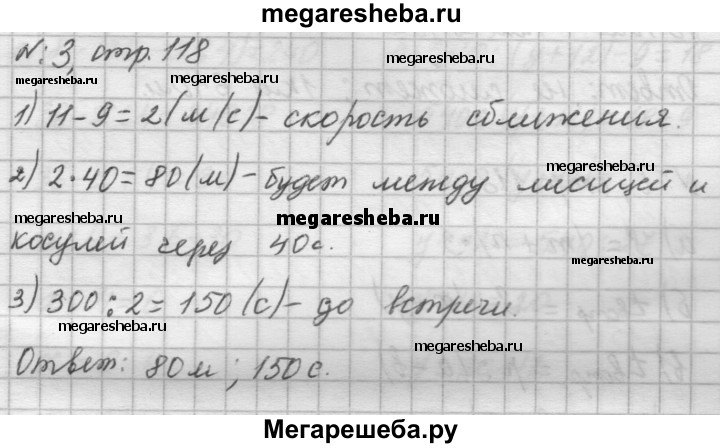 megaresheba.ru
№ 3, стр. 118
megaresheba.ru megaresheba.ru megaresheba.ru
1) 11 - 9 = 2 (м/с) - скорость сближения.
megaresheba.ru
2) 2 · 40 = 80 (м) - будет между лисицей и
megaresheba.ru
косулей через 40 с.
megaresheba.ru
3) 300 : 2 = 150 (с) - до встречи.
megaresheba.ru
megaresheba.ru
Ответ: 80 м ; 150 с.
Мегарешеба.ру